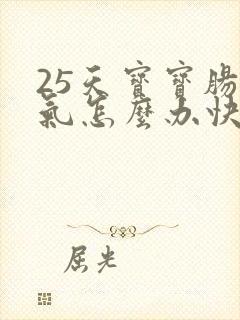 25天寶寶腸
氣怎麼办快
屈光